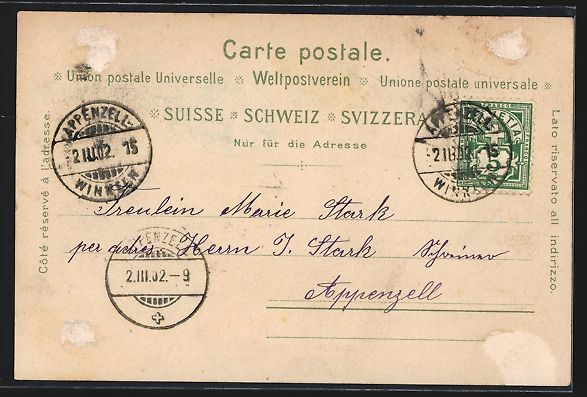 Carte postale.
※ Union postale Universelle ※ Weltpostverein ※ Unione postale universale ※
※ SUISSE ※ SCHWEIZ ※ SVIZZERA
Nur für die Adresse
Côté réservé à l'adresse.
Lato riservato all indirizzo.
APPENZELL-
2.III.02. 15
WINKELN
APPENZELL-
2.III.02. 15
WINKELN
FRANCO
HELVETIA
5
Freulein Marie Stark
per adres. Herrn J. Stark
Appenzell
APPENZELL
2.III.02.-9